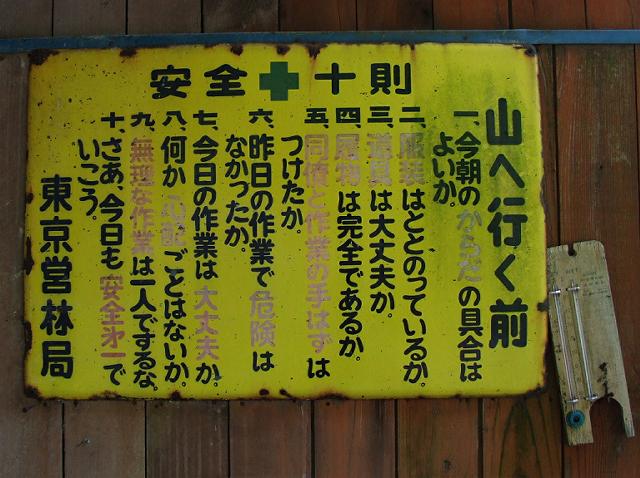 安全十則
山へ行く前
一、今朝のからだの具合は
よいか。
二、服装はととのっているか。
三、道具は大丈夫か。
四、履物は完全であるか。
五、同僚と作業の手はずは
つけたか。
六、昨日の作業で危険は
なかったか。
七、今日の作業は大丈夫か。
八、何か心配ごとはないか。
九、無理な作業は一人でするな。
十、さあ、今日も安全才一で
いこう。
東京営林局